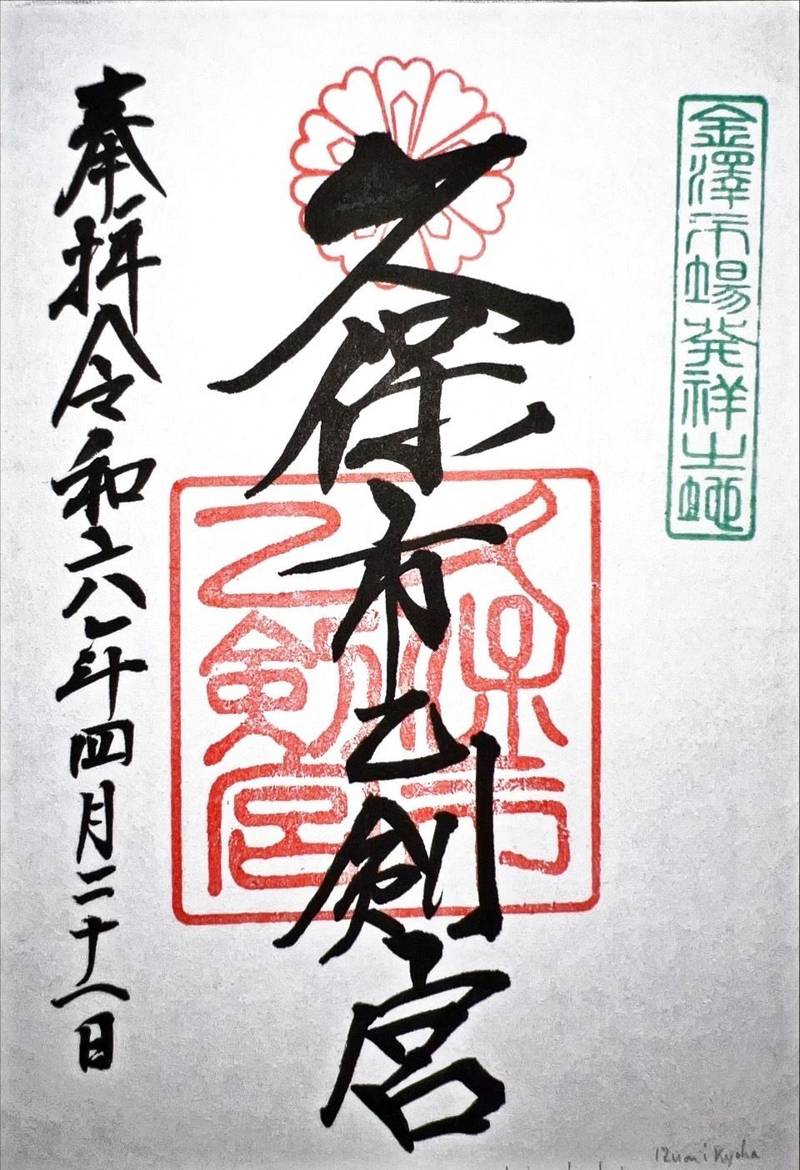 金澤市場発祥之地
久保市乙剣宮
久保市
乙剣宮
奉拝令和六年四月二十一日
Izumi Kyoka